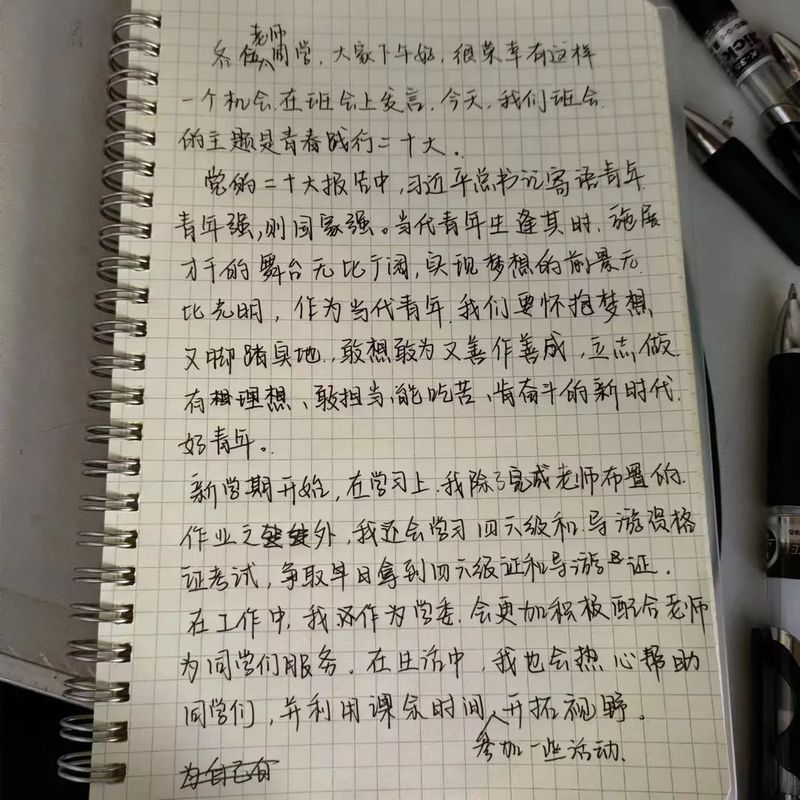 老师
各位同学，大家下午好，很荣幸有这样
一个机会在班会上发言，今天，我们班会
的主题是青春践行二十大。
党的二十大报告中，习近平总书记寄语青年
青年强，则国家强。当代青年生逢其时，施展
才干的舞台无比广阔，实现梦想的前景无
比光明，作为当代青年，我们要怀抱梦想
又脚踏实地，敢想敢为又善作善成，立志做
有理想、敢担当、能吃苦、肯奋斗的新时代
好青年。
新学期开始，在学习上，我除了完成老师布置的
作业之外，我还会学习四六级和导游资格
证考试，争取早日拿到四六级证和导游证。
在工作中，我作为学委，会更加积极配合老师
为同学们服务。在生活中，我也会热心帮助
同学们，并利用课余时间开拓视野。
参加一些活动，
为自己有